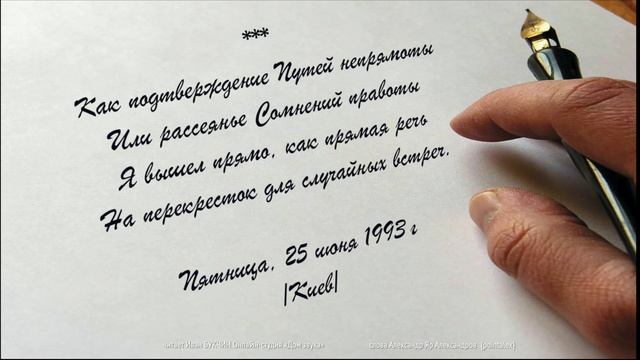 ***
Как подтверждение Путей непрямоты
Или рассеянье Сомнений правоты
Я вышел прямо, как прямая речь
На перекресток для случайных встреч.
Пятница, 25 июня 1993 г
|Киев|
читает Иван БУКЧИН Онлайн-студия «Дом звука» слова Александр Яр Александров (pointalex)